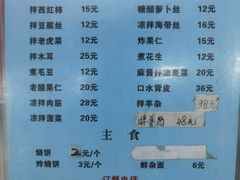 拌西红柿 15元
糖醋萝卜丝 12元
拌豆腐丝 12元
凉拌海带丝 16元
拌老虎菜 12元
炸果仁 15元
拌木耳 25元
煮花生 12元
煮毛豆 12元
麻酱拌油麦菜 20元
老醋果仁 20元
口水肾皮 36元
凉拌肉筋 28元
拌羊杂 38元
凉拌菠菜 20元
48元
主食
烧饼 2元/个
炸烧饼 3元/个
鲜杂面 6元
订餐电话